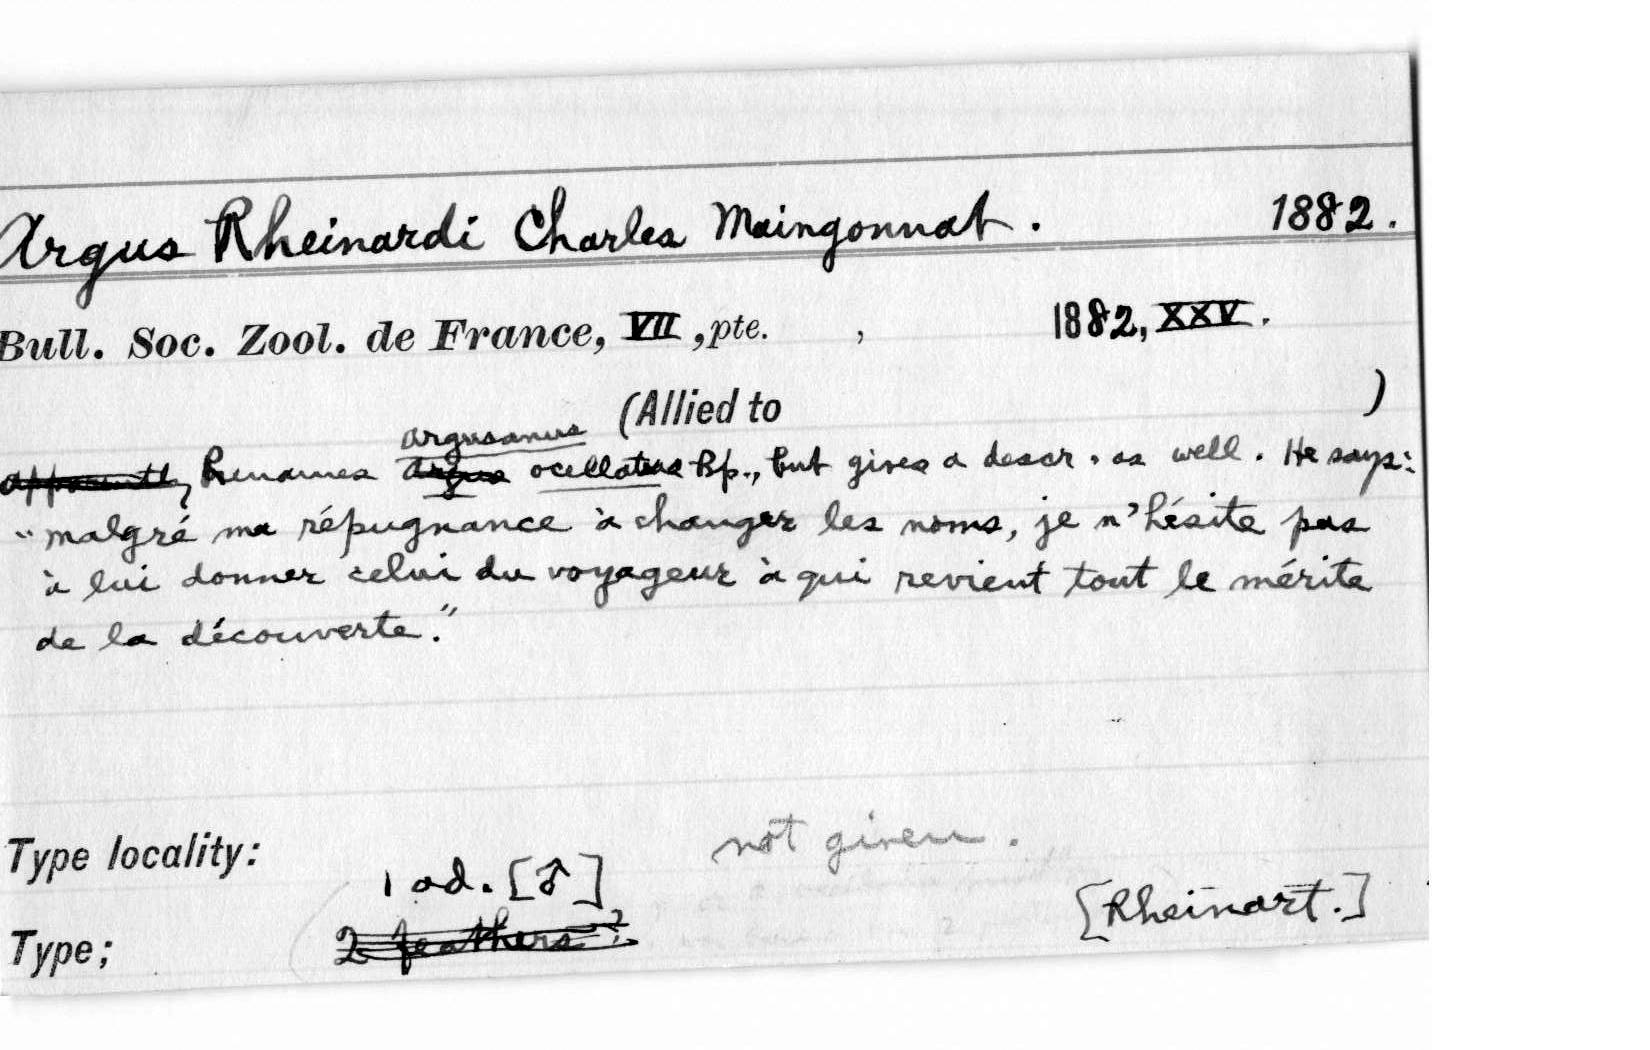 Argus Rheinardi Charles Maingonnat. 1882.
Bull. Soc. Zool. de France, VII, pte. , 1882, XXV.
(Allied to )
argusanus
apparently Renames Argus ocellatus Bp., but gives a descr. as well. He says:
"malgré ma répugnance à changer les noms, je n'hésite pas
à lui donner celui du voyageur à qui revient tout le mérite
de la découverte."
Type locality: not given.
1 ad. [♂] [Rheinart.]
Type; 2 feathers?